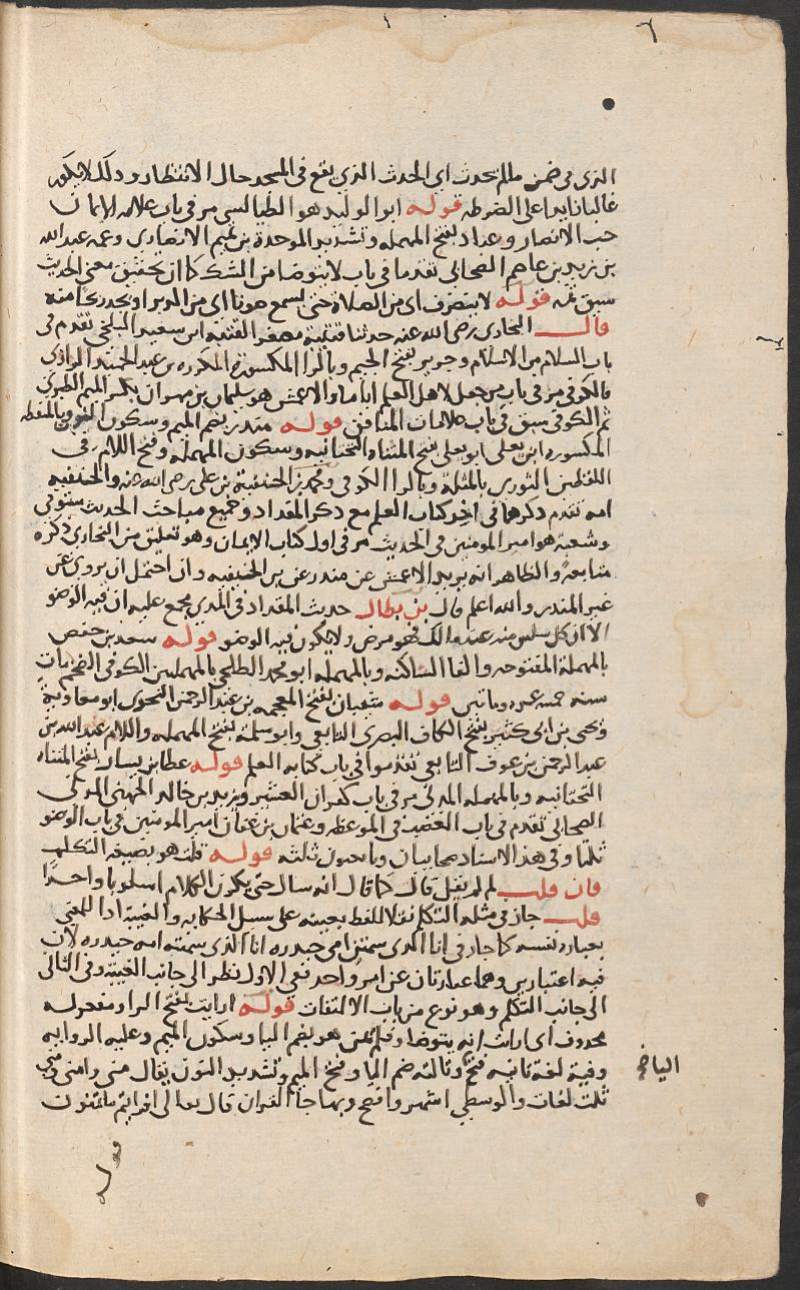 الذى فى ضمن ما لم يحدث اى الحدث الذى يقع فى المسجد حال الانتظار وذلك لا يكون
غالبا زايدا على الضرطه قوله ابو الوليد هو الطيالسى مر فى باب علامه الايمان
حب الانصار وعباد بفتح المهمله وتشديد الموحدة بن تميم الانصارى وعمه عبد الله
بن زيد بن عاصم الصحابى تقدما فى باب لا يتوضا من الشك كما ان تحقيق معنى الحديث
سبق ثمه قوله لا ينصرف اى من الصلاة حتى يسمع صوتا اى من الدبر او يجد ريحا منه
قال البخارى رضى الله عنه حدثنا قتيبة مصغر القتبه ابن سعيد البلخى تقدم فى
باب السلام من الاسلام وجرير بفتح الجيم وبالرا المكسورة المكرره بن عبد الحميد الرازى
الكوفى مر فى باب من جعل لاهل العلم اياما والاعمش هو سليمان بن مهران بكسر الميم الطبرى
ثم الكوفى سبق فى باب علامات المنافق قوله منذر بضم الميم وسكون النون وبالمنقطه
المكسوره ابن يعلى ابو يعلى بفتح المثناه التحتانيه وسكون المهملة وفتح اللام فى
اللفظين الثورى بالمثلثة وبالرا الكوفى ومحمد بن الحنفية بن على رضى الله عنه والحنفيه
امه تقدم ذكرهما فى اخر كتاب العلم مع ذكر المقداد وجميع مباحث الحديث ستوفى
وشعبة هو امير المومنين فى الحديث مر فى اول كتاب الايمان وهو تعليق من البخارى ذكره
متابعة والظاهر انه يريد الاعمش عن منذر عن بن الحنفيه وان احتمل ان يروى عن
غير المنذر والله اعلم قال بن بطال حديث المقداد فى المذى مجمع عليه ان فيه الوضو
الا ان كل سلس منه عند مالك فهو مرض ولا يكون فيه الوضو قوله سعد بن حفص
بالمهملة المفتوحه والفا الساكنه وبالمهمله ابو محمد الطلحى بالمهملتين الكوفى الضخم مات
سنه خمسه عشره وماتين قوله شيبان بفتح المعجمه بن عبد الرحمن النحوى ابو معاوية
ويحى بن ابى كثير بفتح الكاف البصرى التابعى وابو سلمه بفتح المهمله واللام عبد الله بن
عبد الرحمن بن عوف التابعى تقدموا فى باب كتابه العلم قوله عطا بن يسار بفتح المثناه
التحتانيه وبالمهمله المدنى مر فى باب كفران العشير وزيد بن خالد الجهنى المدنى
الصحابى تقدم فى باب الغضب فى الموعظه وعثمان بن عفان امير المومنين فى باب الوضو
ثلثا وفى هذا الاسناد صحابيان وتابعيون ثلثه قوله قلت هو بصيغه التكلم
فان قلت لم لم يقل قال كما قال انه سال حتى يكون الكلام اسلوبا واحدا
قلت جاز فى مثله التكلم نقلا للفظ بعينه على سبيل الحكايه والغيبة ادا للمعنى
بعباره نفسه كما جاز فى انا الذى سمتنى امى حيدره انا الذى سمته امه حيدره لان
فيه اعتبارين وهما عبارتان عن امر واحد ففى الاول نظر الى جانب الغيبة وفى الثانى
الى جانب التكلم وهو نوع من باب الالتفات قوله ارايت بفتح الرا ومفعوله
محذوف اى ارايت انه يتوضا وقلم يمن هو بضم اليا وسكون الميم وعليه الروايه
وفيه لغة ثانيه فتح وثالثه ضم اليا وفتح الميم وتشديد النون يقال منى وامنى ومنى
الياخ
ثلث لغات والوسطى اشهر وافصح وبها جا القران قال تعالى افرايتم ما تمنون
قوله